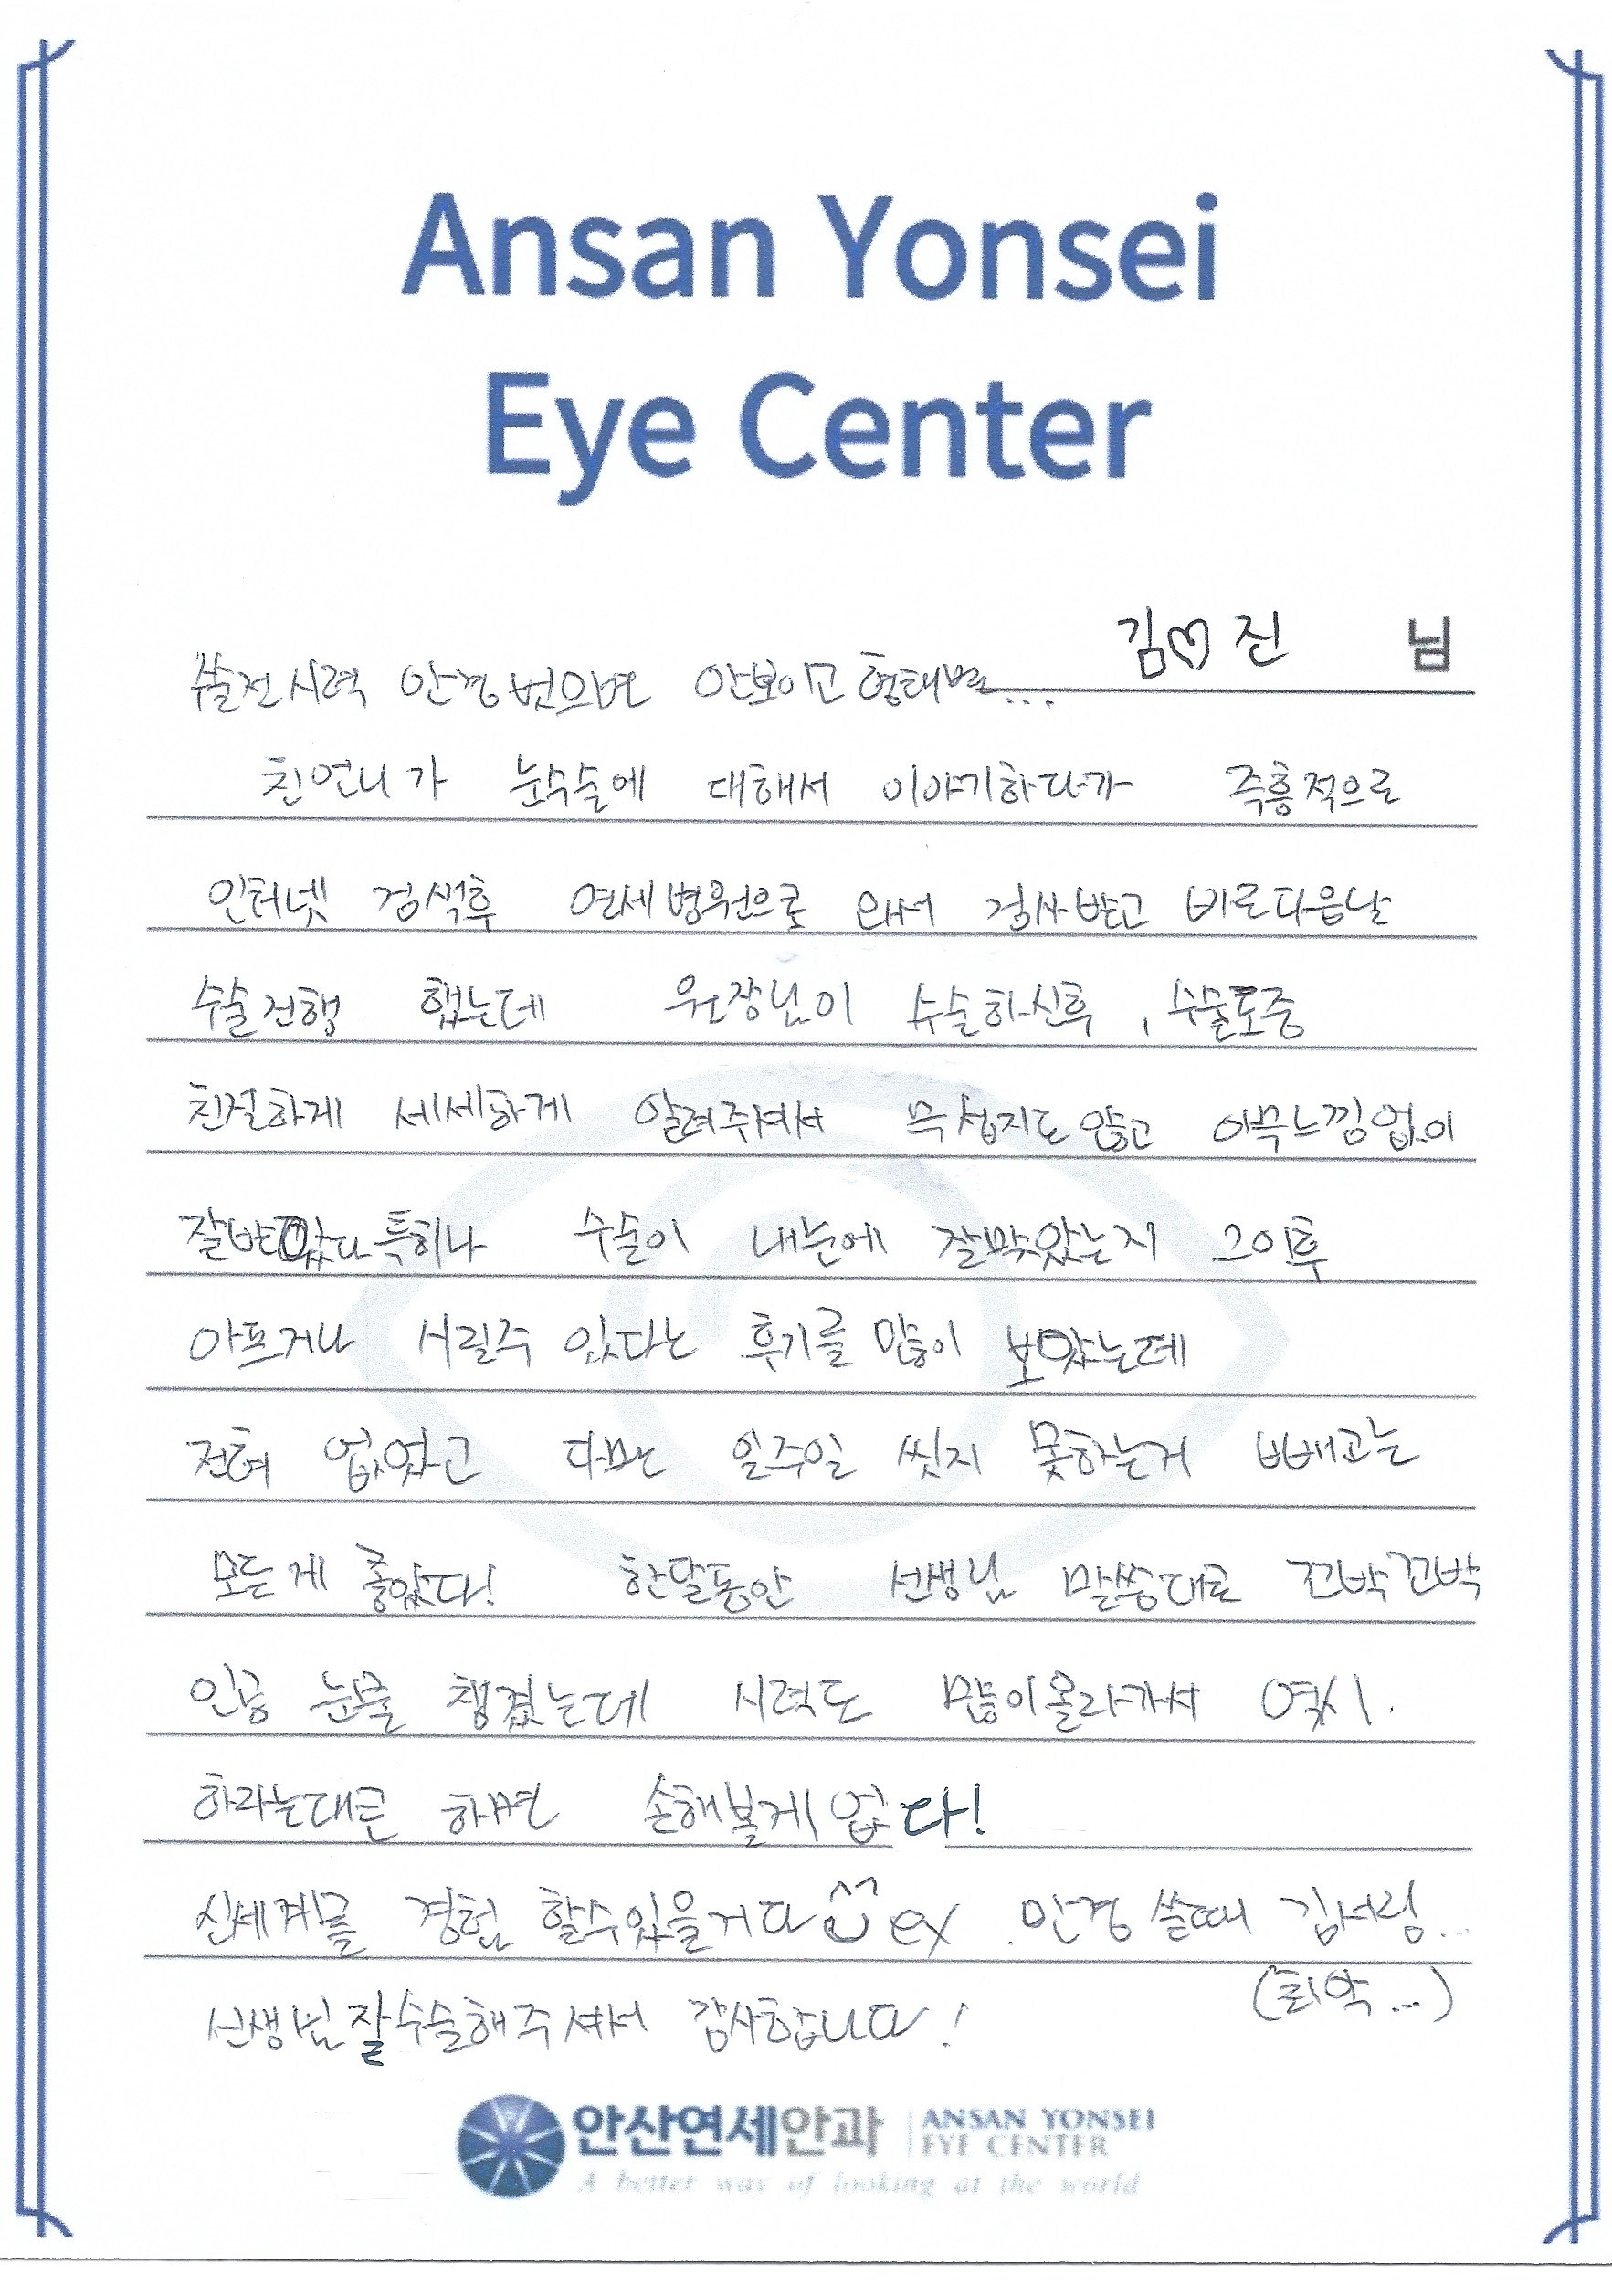 Ansan Yonsei
Eye Center
김♡진 님
수술전시력 안경 벗으면 안보이고 형태만...
친언니가 눈수술에 대해서 이야기하다가 즉흥적으로
인터넷 검색후 연세병원으로 와서 검사받고 바로다음날
수술진행 했는데 원장님이 수술하신후, 수술도중
친절하게 세세하게 알려주셔서 무섭지도 않고 아무느낌없이
잘받았다 특히나 수술이 내눈에 잘맞았는지 그이후
아프거나 시릴수 있다는 후기를 많이 보았는데
전혀 없었고 다만 일주일 씻지 못하는거 빼고는
모든게 좋았다! 한달동안 선생님 말씀대로 꼬박꼬박
인공 눈물 챙겼는데 시력도 많이올라가서 역시.
하라는대로 하면 손해볼게 없다!
신세계를 경험 할수있을거다 ex. 안경 쓸때 김서림..
(최악...)
선생님 잘수술해주셔서 감사합니다!
안산연세안과 ANSAN YONSEI
EYE CENTER
A better way of looking at the world